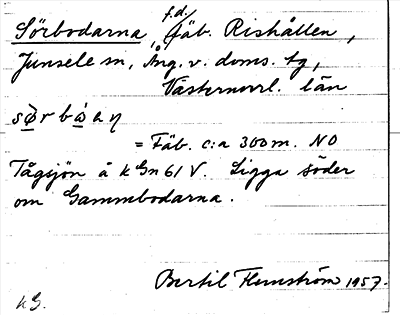 Sörbodarna, f.d. fäb. Rishållen,
Junsele sn, Ång. v. doms. tg,
Västernorrl. län
sø̀rbɷ́aɳ
= Fäb. c:a 300 m. NO
Tågsjön å kGn 61 V. Ligga söder
om Gammbodarna.
Bertil Flemström 1957.
kG.